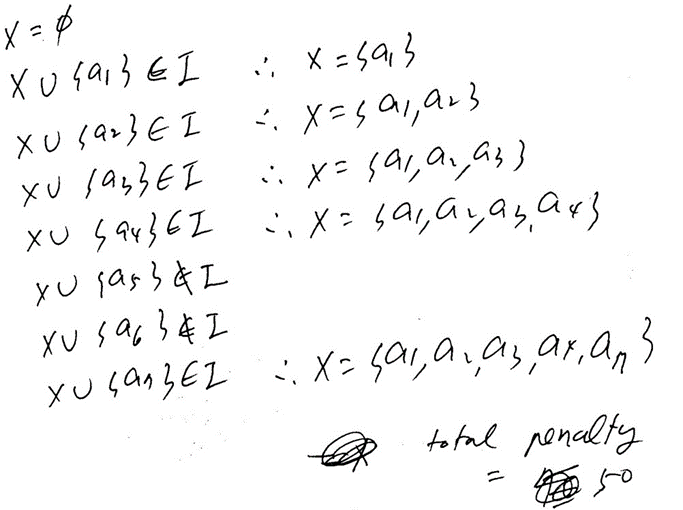 X = ϕ
X ∪ {a₁} ∈ I ∴ X = {a₁}
X ∪ {a₂} ∈ I ∴ X = {a₁, a₂}
X ∪ {a₃} ∈ I ∴ X = {a₁, a₂, a₃}
X ∪ {a₄} ∈ I ∴ X = {a₁, a₂, a₃, a₄}
X ∪ {a₅} ∉ I
X ∪ {a₆} ∉ I
X ∪ {a₇} ∈ I ∴ X = {a₁, a₂, a₃, a₄, a₇}
total penalty
= 50